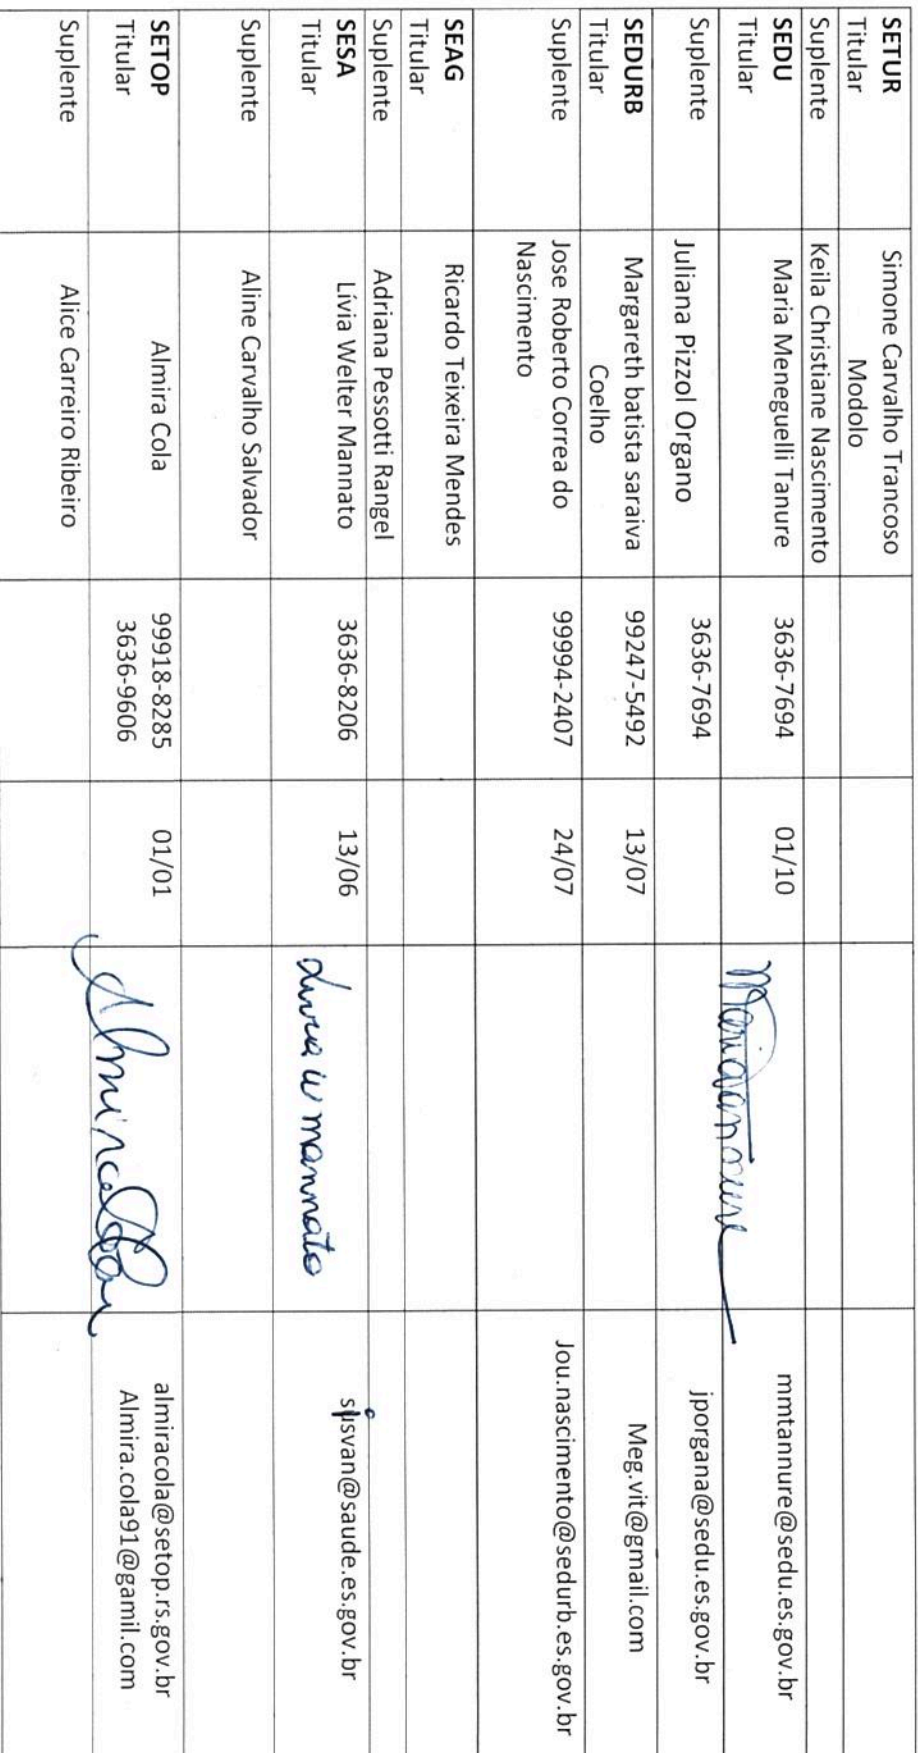 SETUR
Titular
Simone Carvalho Trancoso
Modolo
Suplente
Keila Christiane Nascimento
SEDU
Titular
Maria Meneguelli Tanure
3636-7694
01/10
mmtannure@sedu.es.gov.br
Suplente
Juliana Pizzol Organo
3636-7694
jporgana@sedu.es.gov.br
SEDURB
Titular
Margareth batista saraiva
Coelho
99247-5492
13/07
Meg.vit@gmail.com
Suplente
Jose Roberto Correa do
Nascimento
99994-2407
24/07
Jou.nascimento@sedurb.es.gov.br
SEAG
Titular
Ricardo Teixeira Mendes
Suplente
Adriana Pessotti Rangel
SESA
Titular
Lívia Welter Mannato
3636-8206
13/06
Livia W Mannato
Suplente
Aline Carvalho Salvador
SETOP
Titular
Almira Cola
99918-8285
3636-9606
01/01
almiracola@setop.rs.gov.br
Almira.cola91@gamil.com
Suplente
Alice Carreiro Ribeiro